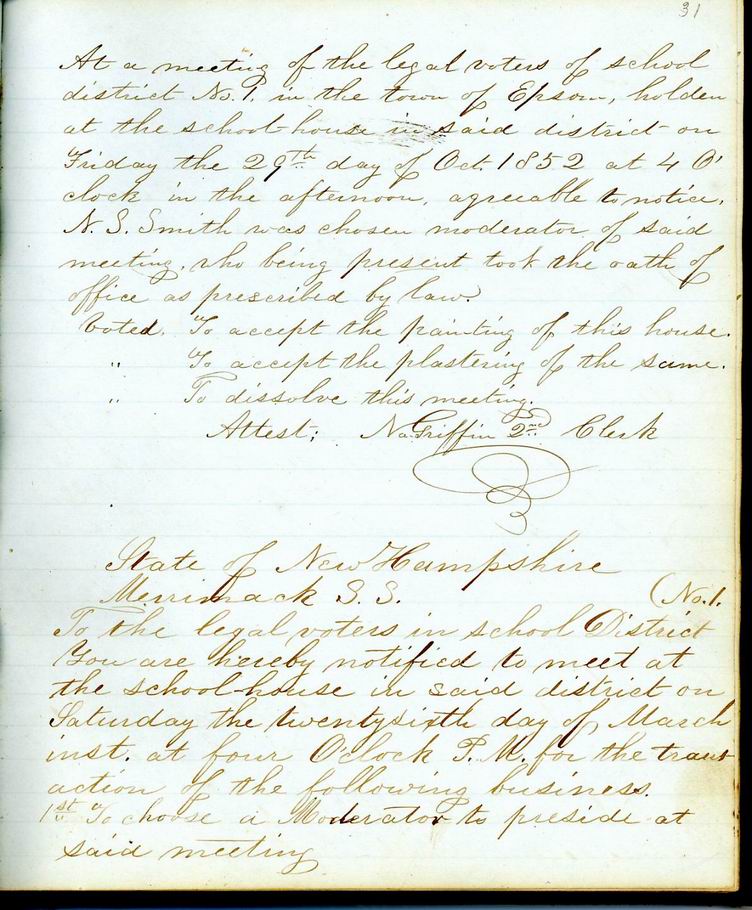 31
At a meeting of the legal voters of school
district No. 1. in the town of Epsom, holden
at the school-house in said district on
Friday the 29th day of Oct. 1852 at 4 O'
clock in the afternoon, agreeable to notice.
N. S. Smith was chosen moderator of said
meeting, who being present took the oath of
office as prescribed by law.
Voted. To accept the painting of this house.
" To accept the plastering of the same.
" To dissolve this meeting.
Attest; Griffin 2nd Clerk
State of New Hampshire
Merrimack S. S. (No. 1.
To the legal voters in school District
You are hereby notified to meet at
the school-house in said district on
Saturday the twentysixth day of March
inst. at four O'clock P. M. for the trans-
action of the following business.
1st To choose a Moderator to preside at
said meeting